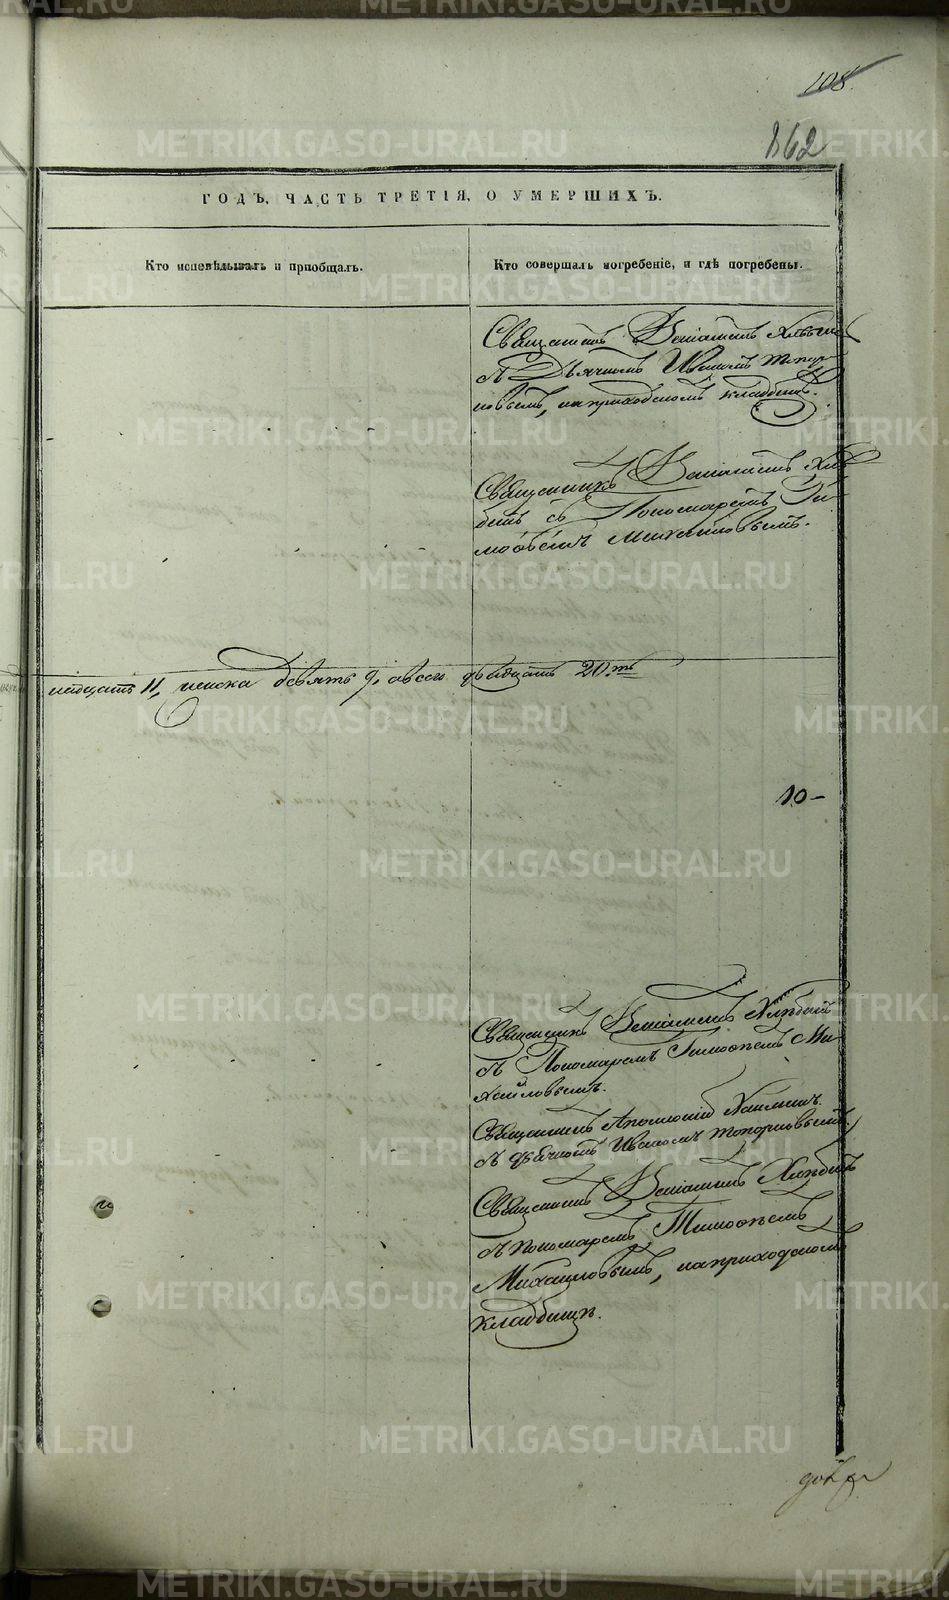 108.
862
ГОДЪ, ЧАСТЬ ТРЕТІЯ, О УМЕРШИХЪ.
Кто исповѣдывалъ и пріобщалъ.
Кто совершалъ погребеніе, и гдѣ погребены.
Священникъ Веніаминъ Хлѣбинъ
съ Дьячкомъ Иваномъ Топор
новымъ, на приходскомъ кладбищѣ.
Священникъ Веніаминъ Хлѣ
бинъ съ Пономаремъ Ти
моѳеемъ Михайловымъ.
надцать 11, женска девять 9, а всего двадцать 20.ть
10-
Священникъ Веніаминъ Хлѣбинъ
съ Пономаремъ Тимоѳеемъ Ми
хайловымъ.
Священникъ Аполлоній
съ дьячкомъ Иваномъ Топорновымъ.
Священникъ Веніаминъ Хлѣбинъ
съ пономаремъ Тимоѳеемъ
Михайловымъ, на приходскомъ
кладбищѣ.
METRIKI.GASO-URAL.RU